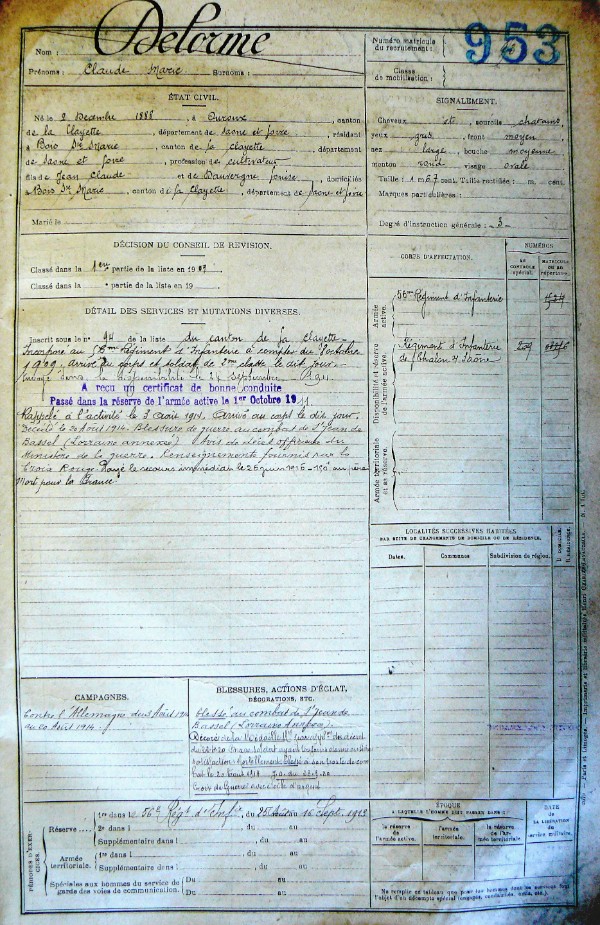 Nom : Delorme
Prénoms : Claude Marie Surnoms :
Numéro matricule
du recrutement :
953
Classe
de mobilisation :
ÉTAT CIVIL.
Né le 2 Decembre 1888, à Ouroux, canton
de la Clayette, département de Saone et Loire, résidant
à Bois Ste Marie, canton de la Clayette, département
de Saone et Loire, profession de cultivateur
fils de Jean Claude et de Dauvergne Louise, domiciliés
à Bois Ste Marie, canton de la Clayette, département de Saone et Loire
Marié le
SIGNALEMENT.
Cheveux et sourcils chatains,
yeux gris, front moyen
nez large, bouche moyenne
menton rond visage ovale
Taille : 1 m. 67 cent. Taille rectifiée : m. cent.
Marques particulières :
Degré d'instruction générale : 3
DÉCISION DU CONSEIL DE RÉVISION.
Classé dans la 1ere partie de la liste en 1909
Classé dans la partie de la liste en 19
DÉTAIL DES SERVICES ET MUTATIONS DIVERSES.
Inscrit sous le n° 94 de la liste du canton de la Clayette
Incorporé au 56me Régiment d'Infanterie à compter du octobre
1909, arrivé au corps et soldat de 2me classe le dit jour.
Envoyé dans la disponibilité le 24 Septembre 1911
A reçu un certificat de bonne conduite
Passé dans la réserve de l'armée active le 1er Octobre 1911
Rappelé à l'activité le 3 août 1914. Arrivé au corps le dit jour.
Décédé le 20 Août 1914. Blessure de guerre au combat de St Jean de
Bassel (Lorraine annexée) Avis de décès officieux du
Ministère de la guerre. Renseignements fournis par la
Croix Rouge. Payé le secours immédiat le 26 juin 1916
Mort pour la France
CORPS D'AFFECTATION.
NUMÉROS
AU CONTROLE spécial.
MATRICULE OU AU RÉPERTOIRE.
Armée active.
56me Régiment d'Infanterie
Disponibilité et réserve de l'armée active.
Régiment d'Infanterie
de Chalon s/ Saône
Armée territoriale et sa réserve.
LOCALITÉS SUCCESSIVES HABITÉES
PAR SUITE DE CHANGEMENTS DE DOMICILE OU DE RÉSIDENCE.
Dates. Communes Subdivision de région. D. domicile. R. résidence.
CAMPAGNES.
Contre l'Allemagne du 3 Août 1914
au 20 Août 1914.
BLESSURES, ACTIONS D'ÉCLAT,
DÉCORATIONS, ETC.
Blessé au combat de St Jean de
Bassel (Lorraine
Croix de Guerre avec étoile d'argent
PÉRIODES D'EXERCICES.
Réserve 1re dans l 56e Régt d'Infie, du 25 Août au 16 Sept. 1913
2e dans l , du au
Supplémentaire dans l , du au
Armée territoriale. 1re dans l , du au
Supplémentaire dans l , du au
Spéciales aux hommes du service de
garde des voies de communication. Du au
Du au
ÉPOQUE
A LAQUELLE L'HOMME DOIT PASSER DANS :
la réserve de l'armée active.
l'armée territoriale.
la réserve de l'armée territoriale.
DATE
de
LA LIBÉRATION
du
service militaire.